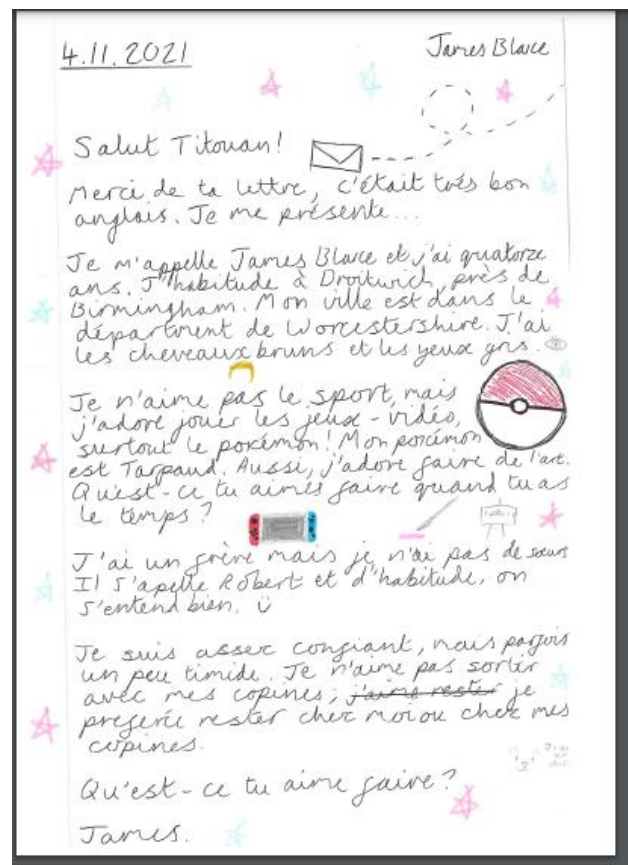 4.11.2021
James Blake
Salut Titouan!
Merci de ta lettre, c'était très bon
anglais. Je me présente...
Je m'appelle James Blake et j'ai quatorze
ans. J'habitude à Droitwich, près de
Birmingham. Mon ville est dans le
départment de Worcestershire. J'ai
les cheveaux bruns et les yeux gris.
Je n'aime pas le sport, mais
j'adore jouer les jeux-vidéo,
surtout le pokémon! Mon pokémon
est Tarpaud. Aussi, j'adore faire de l'art.
Qu'est-ce tu aimes faire quand tu as
le temps?
J'ai un frère mais je n'ai pas de sœurs
Il s'apelle Robert et d'habitude, on
s'entend bien.
Je suis assez confiant, mais parfois
un peu timide. Je n'aime pas sortir
avec mes copines, j'aime rester je
preferé rester chez moi ou chez mes
copines.
Qu'est-ce tu aime faire?
James.